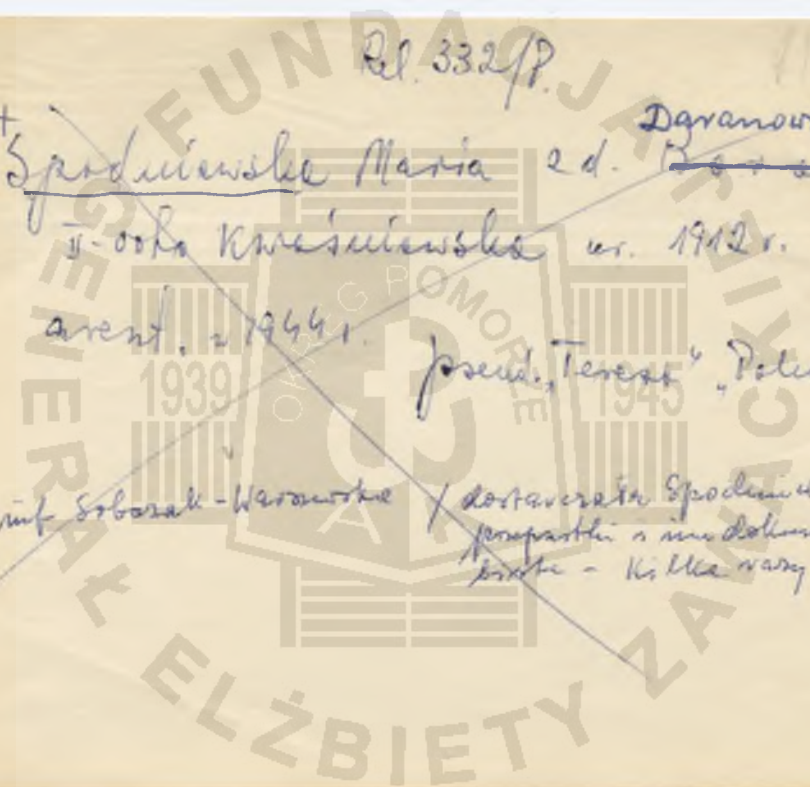 Rel. 332/P.
+ Daranow
Spodniewska Maria z d.
II-voto Kwaśniewska ur. 1912 r.
areszt. w 1944 r.
pseud. "Teresa"
inf. Sobczak-Warszawska / dostarczała
przepustki i inne
- Kilka razy
FUNDACJA GENERAŁ ELŻBIETY ZAWACKIEJ
OKRĘG POMORZE
1939 1945
AK